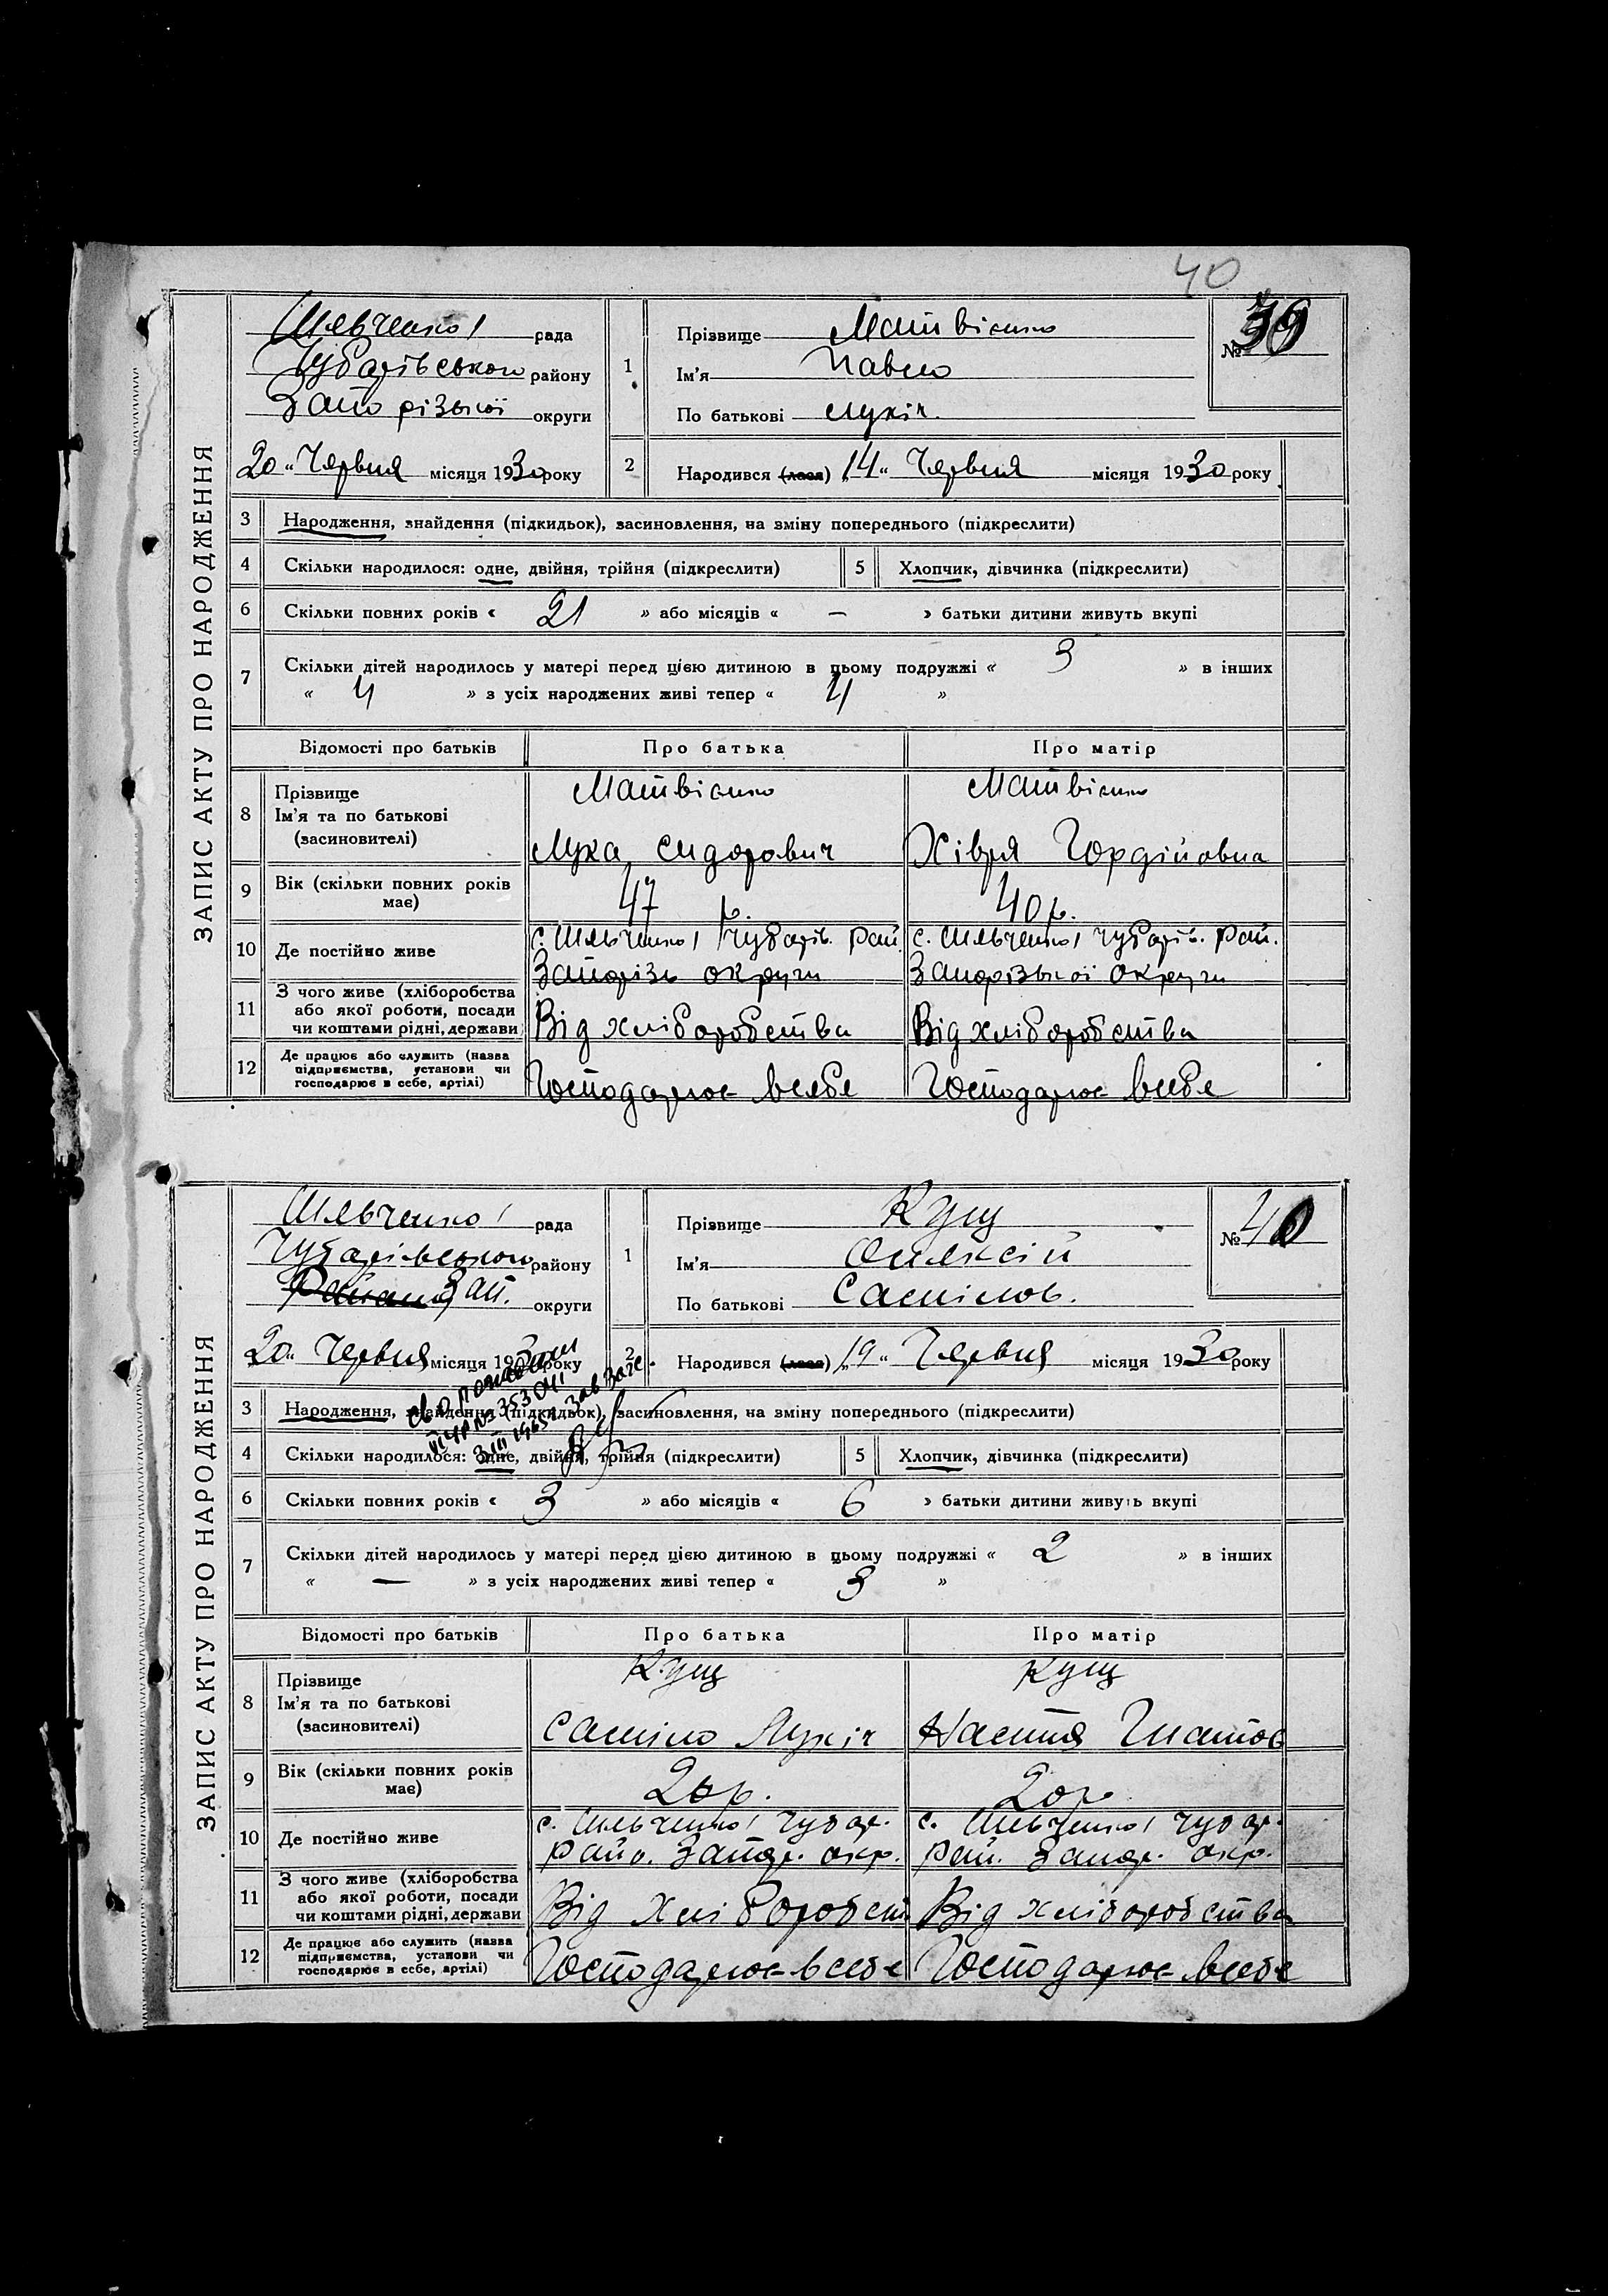 40
ЗАПИС АКТУ ПРО НАРОДЖЕННЯ
Шевченко/ рада
Чубарівського району
Запорізької округи
20 „ Червня місяця 1930 року
1
Прізвище Матвієнко
Ім'я Павло
По батькові Лукіч.
№ 39
2 Народився (лася) „14“ Червня місяця 1930 року
3 Народження, знайдення (підкидьок), засиновлення, на зміну попереднього (підкреслити)
4 Скільки народилося: одне, двійня, трійня (підкреслити) 5 Хлопчик, дівчинка (підкреслити)
6 Скільки повних років « 21 » або місяців « — » батьки дитини живуть вкупі
7 Скільки дітей народилось у матері перед цією дитиною в цьому подружжі « 3 » в інших
« 4 » з усіх народжених живі тепер « 4 »
Відомості про батьків Про батька Про матір
8 Прізвище Матвієнко Матвієнко
Ім'я та по батькові
(засиновителі) Лука Сидорович Хівря Гордійовна
9 Вік (скільки повних років має) 47 р. 40 р.
10 Де постійно живе с. Шевченко/ Чубарів. Рай. с. Шевченко/ Чубарів. Рай.
Запорізь округи Запорізької округи
11 З чого живе (хліборобства
або якої роботи, посади
чи коштами рідні, держави Від хліборобства Від хліборобства
12 Де працює або служить (назва
підприємства, установи чи
господарює в себе, артілі) Господарює всебе Господарює всебе
ЗАПИС АКТУ ПРО НАРОДЖЕННЯ
Шевченко/ рада
Чубарівського району
Зап. округи
20 „ Червня місяця 1930 року
1
Прізвище Кущ
Ім'я Олексій
По батькові Самілов.
№ 40
2 Народився (лася) „19“ Червня місяця 1930 року
3 Народження, знайдення (підкидьок), засиновлення, на зміну попереднього (підкреслити)
4 Скільки народилося: одне, двійня, трійня (підкреслити) 5 Хлопчик, дівчинка (підкреслити)
6 Скільки повних років « 3 » або місяців « 6 » батьки дитини живуть вкупі
7 Скільки дітей народилось у матері перед цією дитиною в цьому подружжі « 2 » в інших
« — » з усіх народжених живі тепер « 3 »
Відомості про батьків Про батька Про матір
8 Прізвище Кущ Кущ
Ім'я та по батькові
(засиновителі) Саміло Лукіч Настя Гнатов
9 Вік (скільки повних років має) 20 р. 20 р.
10 Де постійно живе с. Шевченко/ Чубар. с. Шевченко/ Чубар.
Райо. Запор. окр. Рай. Запор. окр.
11 З чого живе (хліборобства
або якої роботи, посади
чи коштами рідні, держави Від хліборобст Від хліборобства
12 Де працює або служить (назва
підприємства, установи чи
господарює в себе, артілі) Господарює всебе Господарює всебе